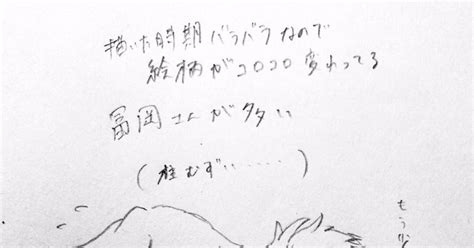 描いた時期バラバラなので
絵柄がコロコロ変わってる
冨岡さんが多い
(柱むずい‥‥‥)
もう少